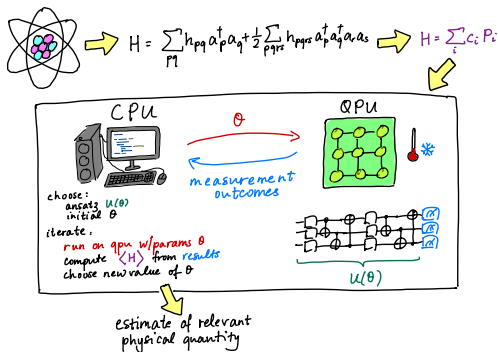 H = ∑pq hpq a†p aq + 1/2 ∑pqrs hpqrs a†p a†q ar as
H = ∑i ci Pi
CPU
QPU
θ
measurement
outcomes
choose:
ansatz U(θ)
initial θ
iterate:
run on qpu w/params θ
compute ⟨H⟩ from results
choose new value of θ
U(θ)
estimate of relevant
physical quantity